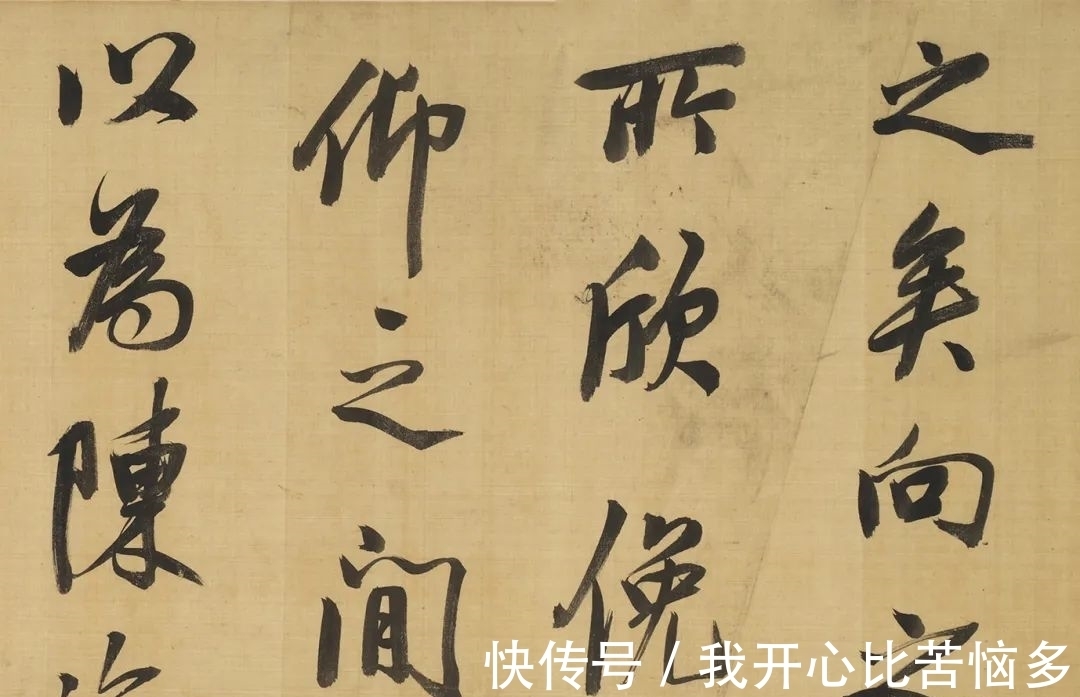 之矣向之
所欣俛
仰之間
以為陳迹
快传号/我开心比苦恼多